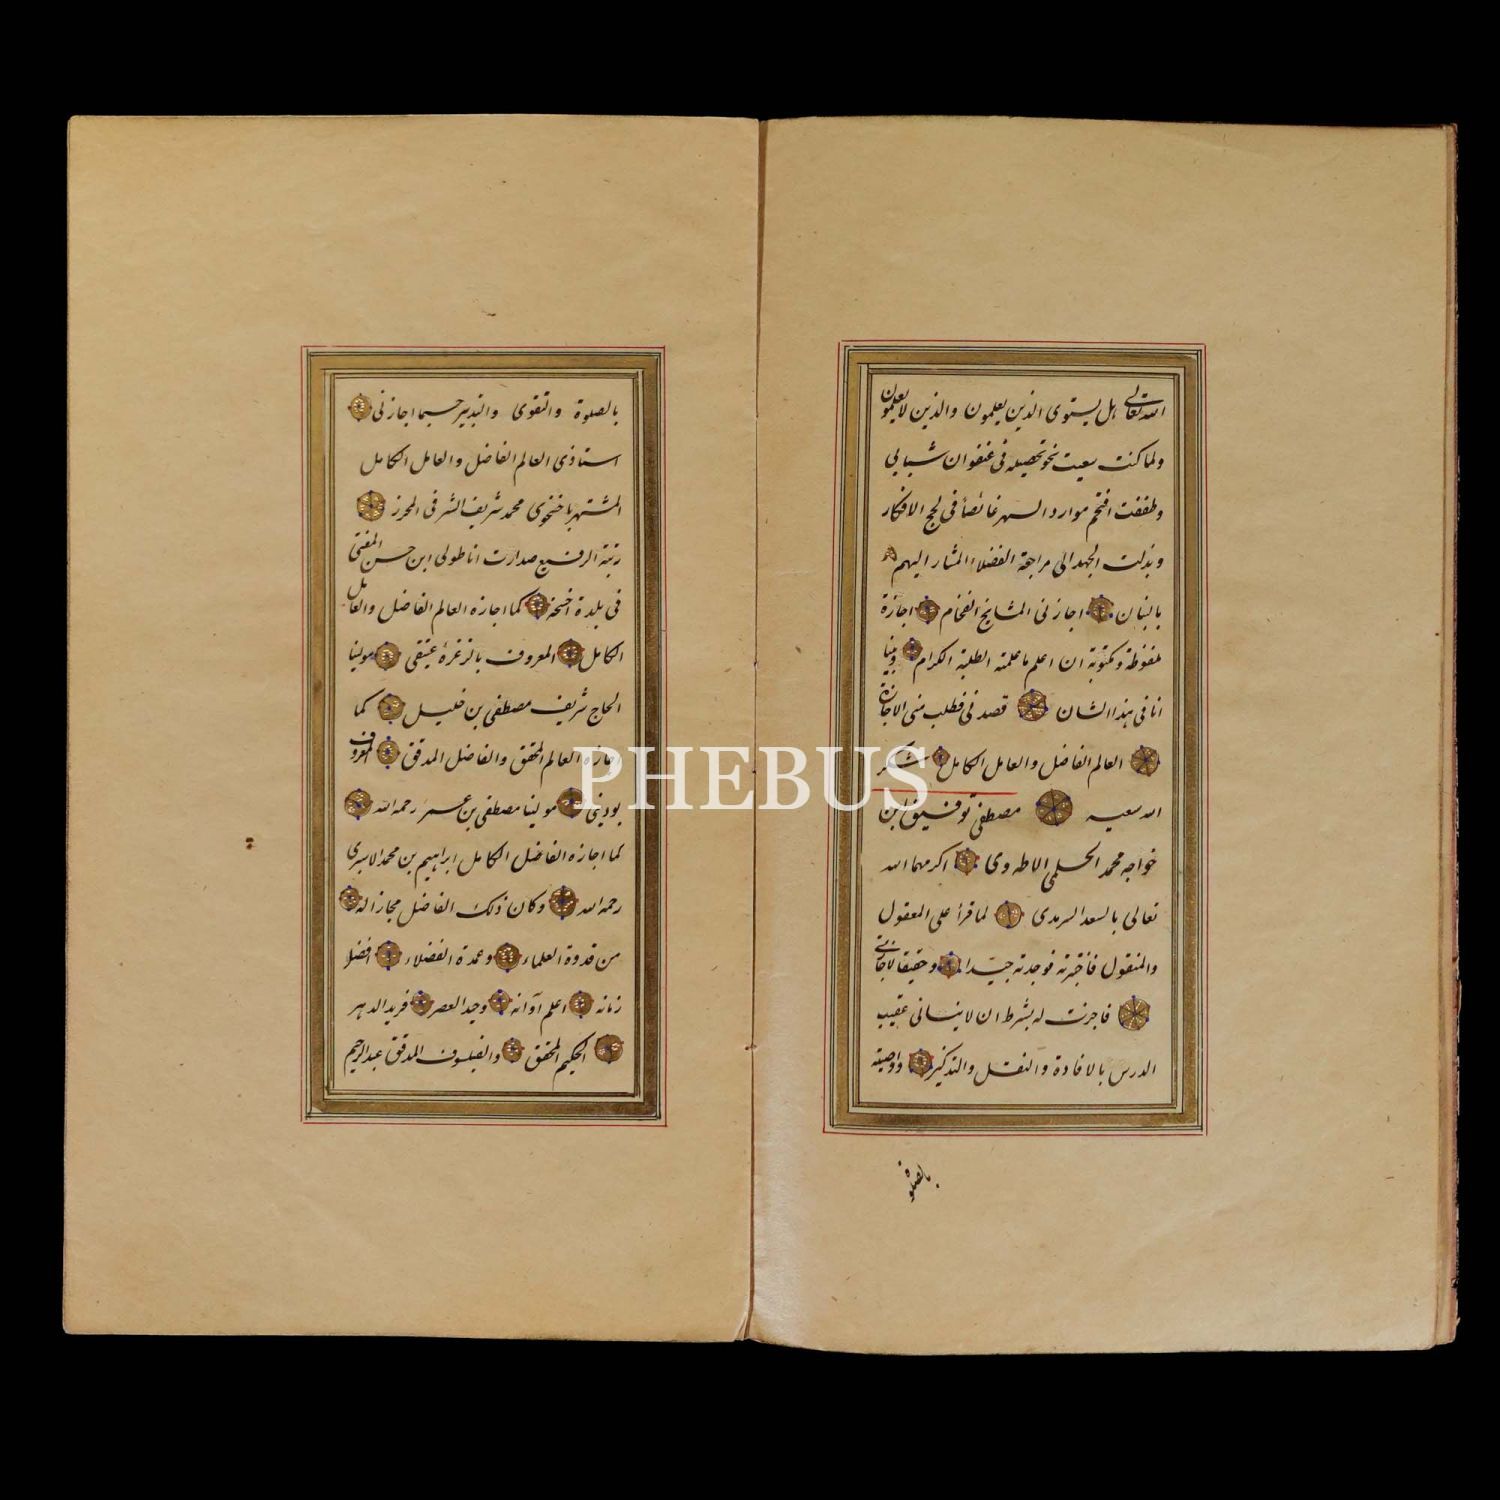 الله تعالى هل يستوى الذين يعلمون والذين لا يعلمون
ولما كنت سعيت نحو تحصيله فى عنفوان شبابى
وطفقت اقتحم موارد السهر غائصا فى لجج الافكار
وبذلت الجهد الى مراجعة الفضلاء المشار اليهم
بالبنان اجازنى المشايخ الفخام اجازة
ملفوظة ومكتوبة ان اعلم ما علمته الطلبة الكرام وبينا
انا فى هذا الشان قصدنى فطلب منى الاجازة
العالم الفاضل والعامل الكامل شكر
الله سعيه مصطفى توفيق ابن
خواجه محمد الحلمى الاطه وى اكرمهما الله
تعالى بالسعد السرمدى لما قرأ على المعقول
والمنقول فاختبرته فوجدته جيدا وحقيقا لاجازتى
فاجزت له بشرط ان لا ينسانى عقيب
الدرس بالافادة والنقل والتذكير وواصيته
بالصلوة
بالصلوة والتقوى والتدبير حسبما اجازنى
استاذى العالم الفاضل والعامل الكامل
المشتهر باخسخوى محمد شريف الشرفى المحرز
رتبة الرفيع صدارت اناطولى ابن حسن المفتى
فى بلدة اخسخه كما اجازه العالم الفاضل والعامل
الكامل المعروف عتيقى مولينا
الحاج شريف مصطفى بن خليل كما
اجازه العالم المحقق والفاضل المدقق المعروف
بودينى مولينا مصطفى بن عمر رحمه الله
كما اجازه الفاضل الكامل ابراهيم بن محمد الاسبرى
رحمه الله وكان ذلك الفاضل مجازا له
من قدوة العلماء وعمدة الفضلاء افضل
زمانه اعلم آوانه وحيد العصر فريد الدهر
الحكيم المحقق والفيلسوف المدقق عبد الرحيم
PHEBUS